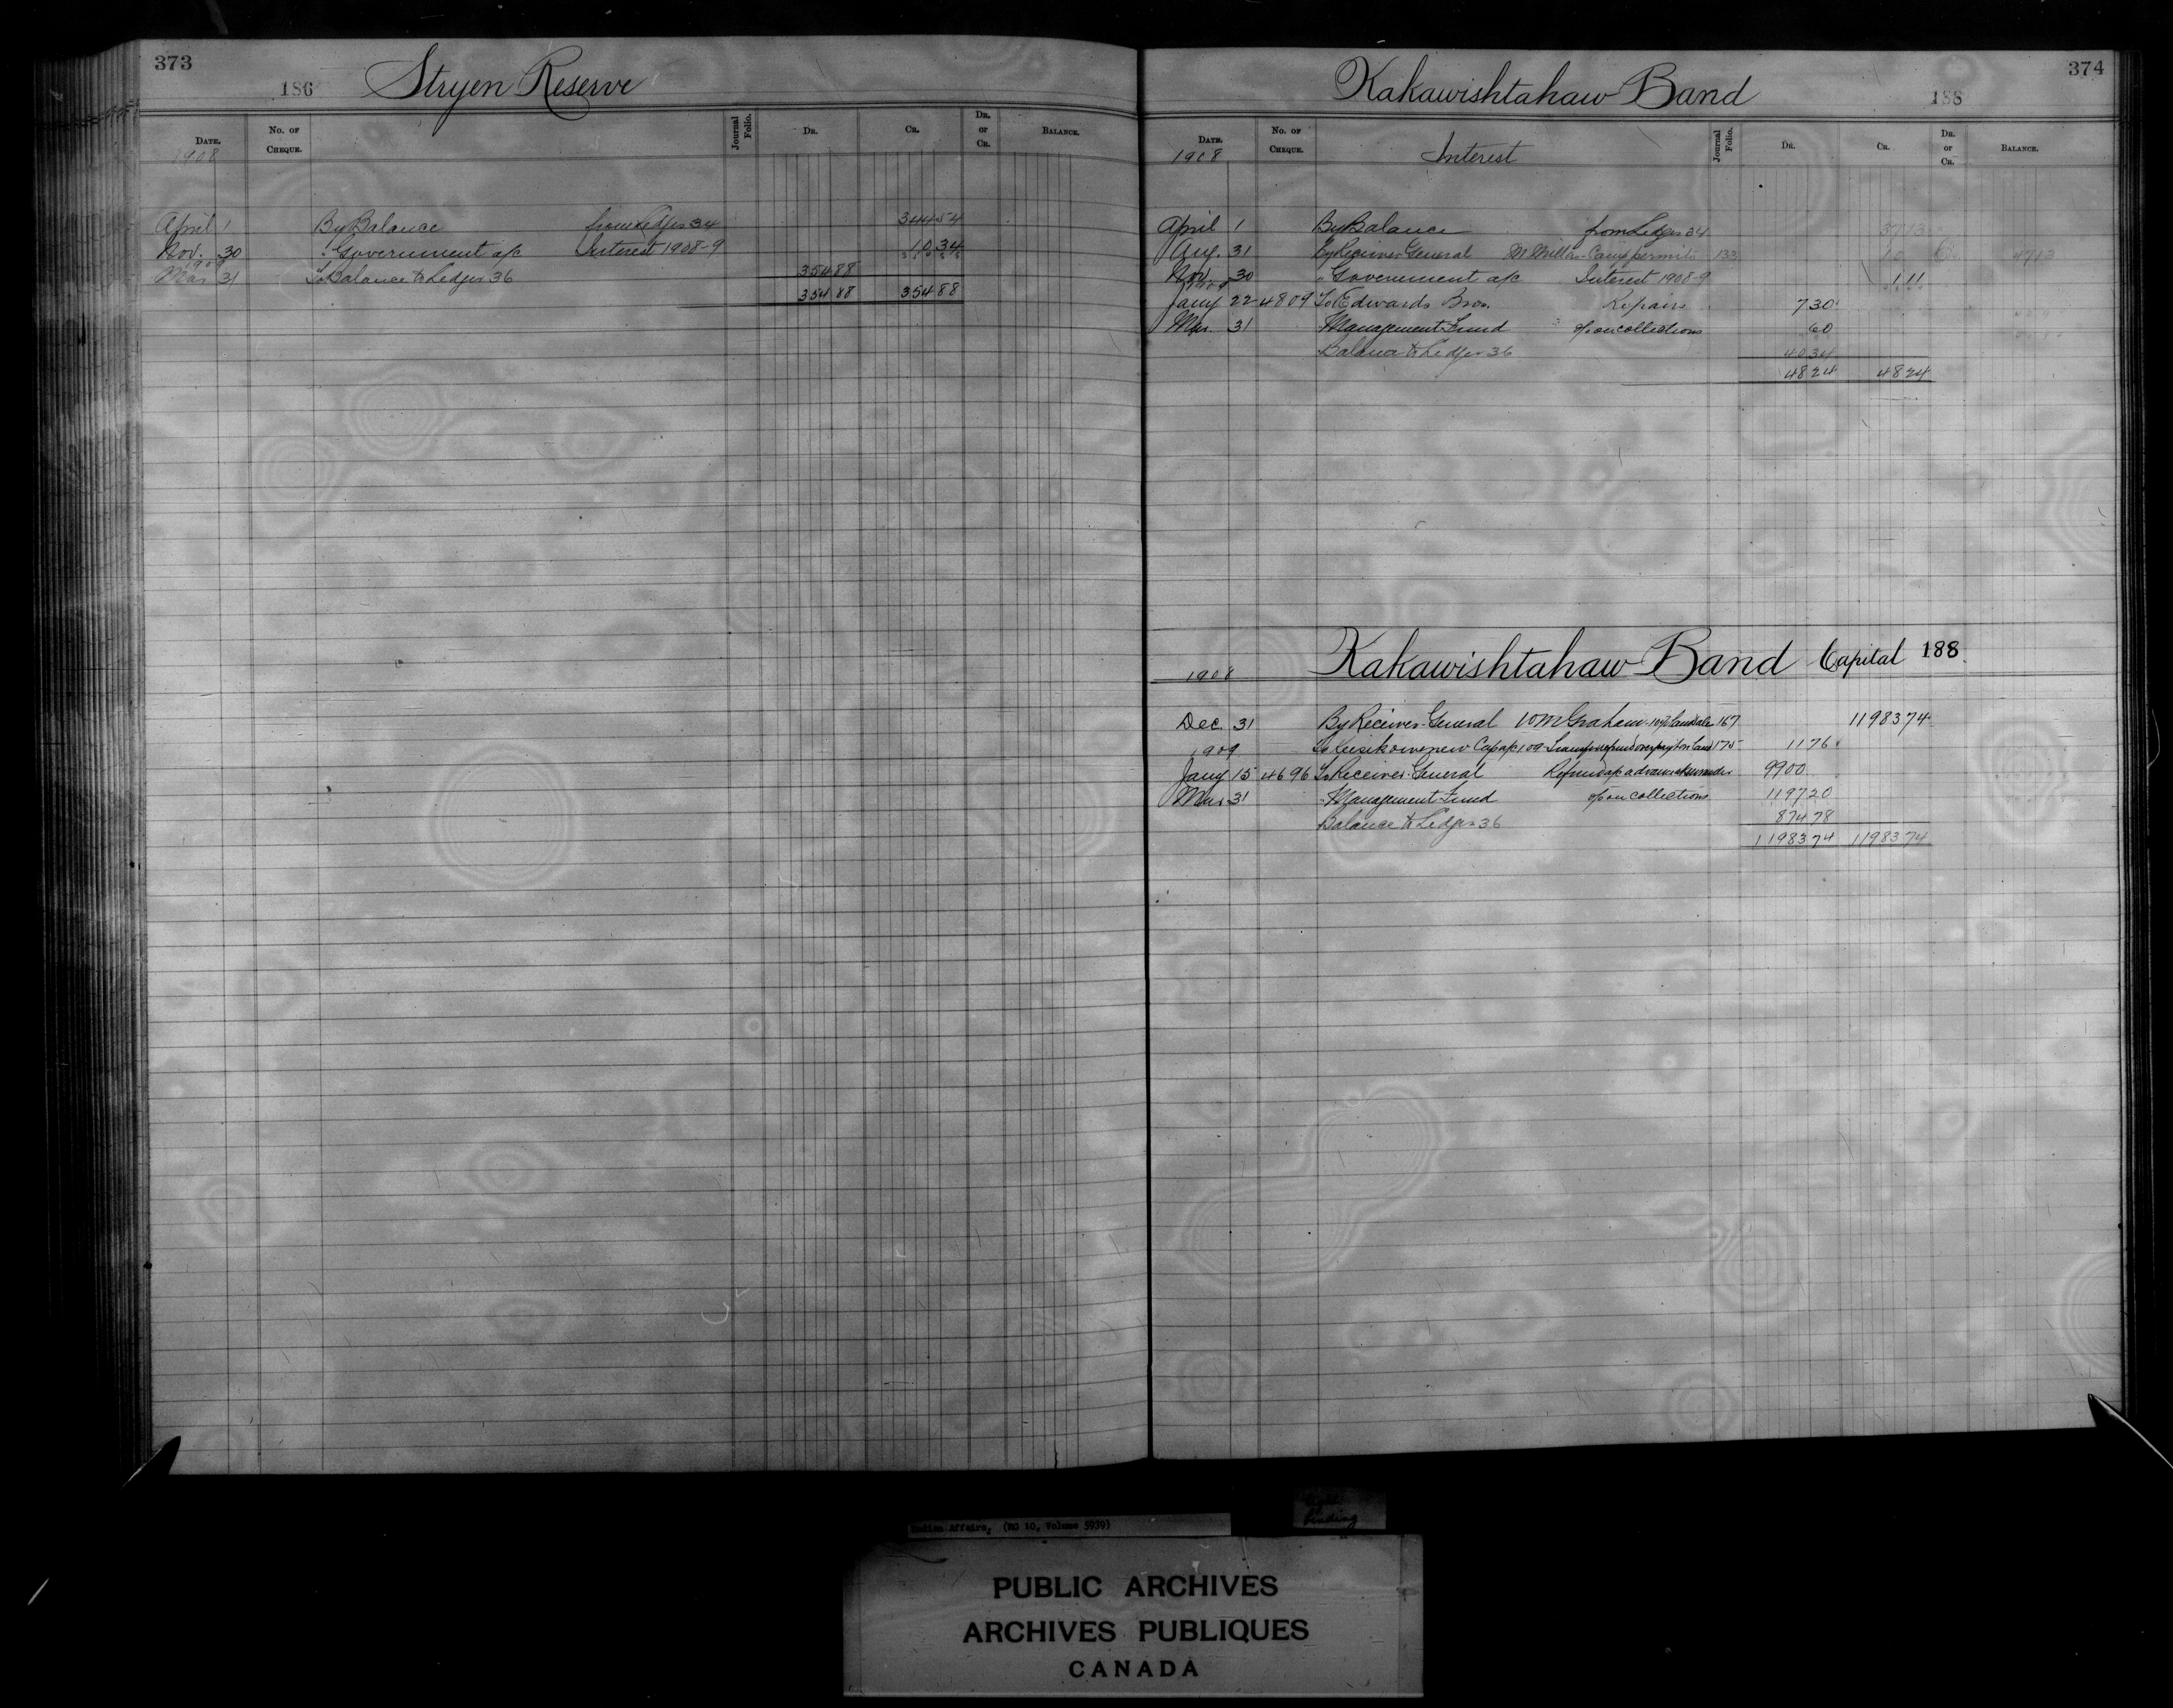 373
186 Stryen Reserve
DATE. No. OF CHEQUE. Journal Folio. DR. CR. DR. or CR. BALANCE.
1908
April 1 By Balance from Ledger 34 344 54
Nov. 30 " Government a/c Interest 1908-9 10 34
1909
Mar 31 To Balance to Ledger 36 354 88
354 88 354 88
374
Kakawishtahaw Band 188
DATE. No. OF CHEQUE. Interest Journal Folio. DR. CR. DR. or CR. BALANCE.
1908
April 1 By Balance from Ledger 34 37 13
Aug. 31 By Receiver General Camp permits 133 10 47 13
Nov. 30 " Government a/c Interest 1908-9 1 11
1909
Jany 22 4809 To Edwards Bros. Repairs 7 30
Mar. 31 Management Fund on collections 60
Balance to Ledger 36 40 34
48 24 48 24
Kakawishtahaw Band Capital 188
1908
Dec. 31 By Receiver General W M Graham 167 11983 74
1909 To Keesikowenew Cap a/c 109 175 11 76
Jany 15 4696 To Receiver General Refund a/c advance 99 00
Mar 31 " Management Fund on collections 1197 20
Balance to Ledger 36 874 78
11983 74 11983 74
Indian Affairs, (RG 10, Volume 5939)
Binding
PUBLIC ARCHIVES
ARCHIVES PUBLIQUES
CANADA